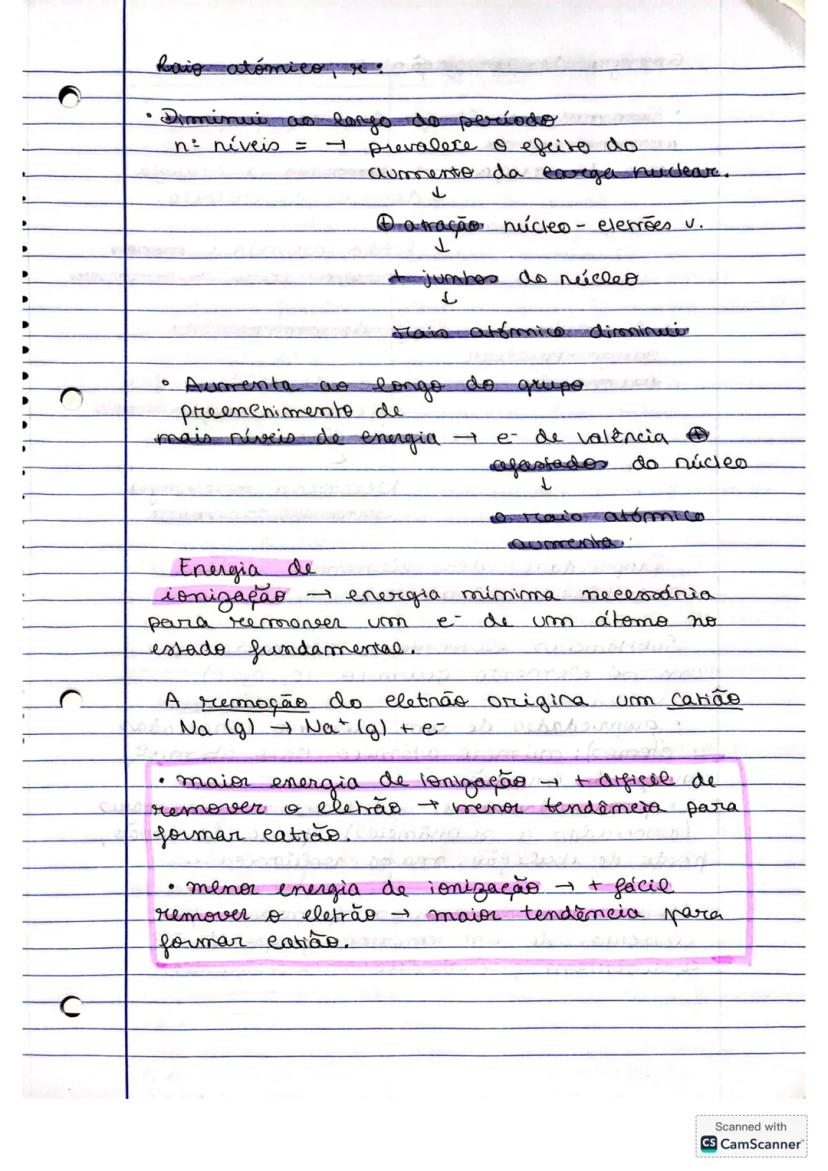 Raio atómico, r:
• Diminui ao longo do período
nº níveis = → prevalece o efeito do
aumento da carga nuclear.
↓
⊕ atração núcleo - eletrões v.
↓
+ juntos do núcleo
↓
raio atómico diminui
• Aumenta ao longo do grupo
preenchimento de
mais níveis de energia → e- de valência ⊕
afastados do núcleo
↓
o raio atómico
aumenta.
Energia de
ionização → energia mínima necessária
para remover um e- de um átomo no
estado fundamental.
A remoção do eletrão origina um catião
Na (g) → Na⁺ (g) + e-
• maior energia de ionização → + difícil de
remover o eletrão → menor tendência para
formar catião.
• menor energia de ionização → + fácil
remover o eletrão → maior tendência para
formar catião.
Scanned with
CS CamScanner